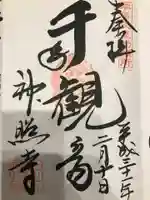 奉拝
平成三十一年
二月十日
千手観音
神照寺